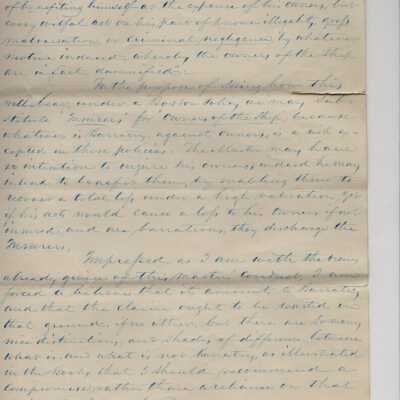 of benefiting himself at the expense of his owners, but
every wilful act on his part of known illegality, gross
malversation or criminal negligence by whatever
motive induced whereby the owners of the Ship
are in fact damnified".
For the purpose of seeing how this
will bear, under a Boston Policy, we may Sub-
stitute "Insurers" for "Owners of the Ship, because
whatever is Barratry against Owners, is a risk ac-
cepted in those policies. The Master may have
no intention to injure his owners, indeed he may
intend to benefit them, by enabling them to
recover a total loss under a high valuation, yet
if his acts would cause a loss to his Owners if not
insured and are barratrous, they discharge the
Insurers.
Impressed as I am with the views
already given of this Master's Conduct, I am
forced to believe that it amounts to Barratry
and that the claim ought to be resisted on
that ground, if no other, but there are so many
nice distinctions, and shades of difference between
what is and what is not barratry, as illustrated
in the books, that I should recommend a
compromise rather than a reliance on that